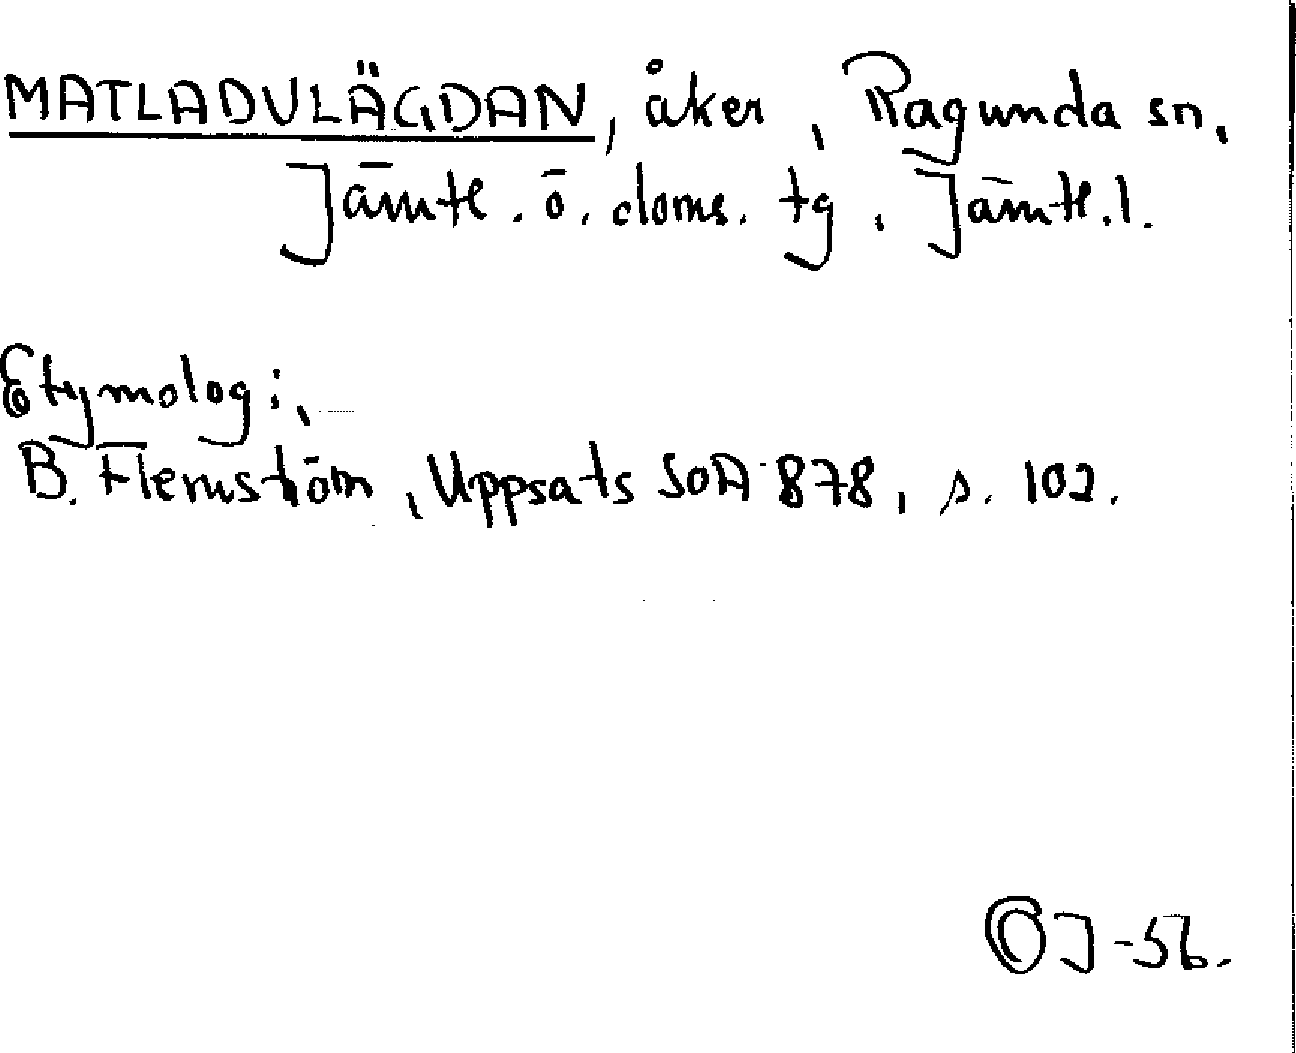 MATLADULÄGDAN, åker, Ragunda sn,
Jämtl. ö. doms. tg, Jämtl. l.
Etymologi:,
B. Flemström, Uppsats SOA 878, s. 102.
OJ-56.